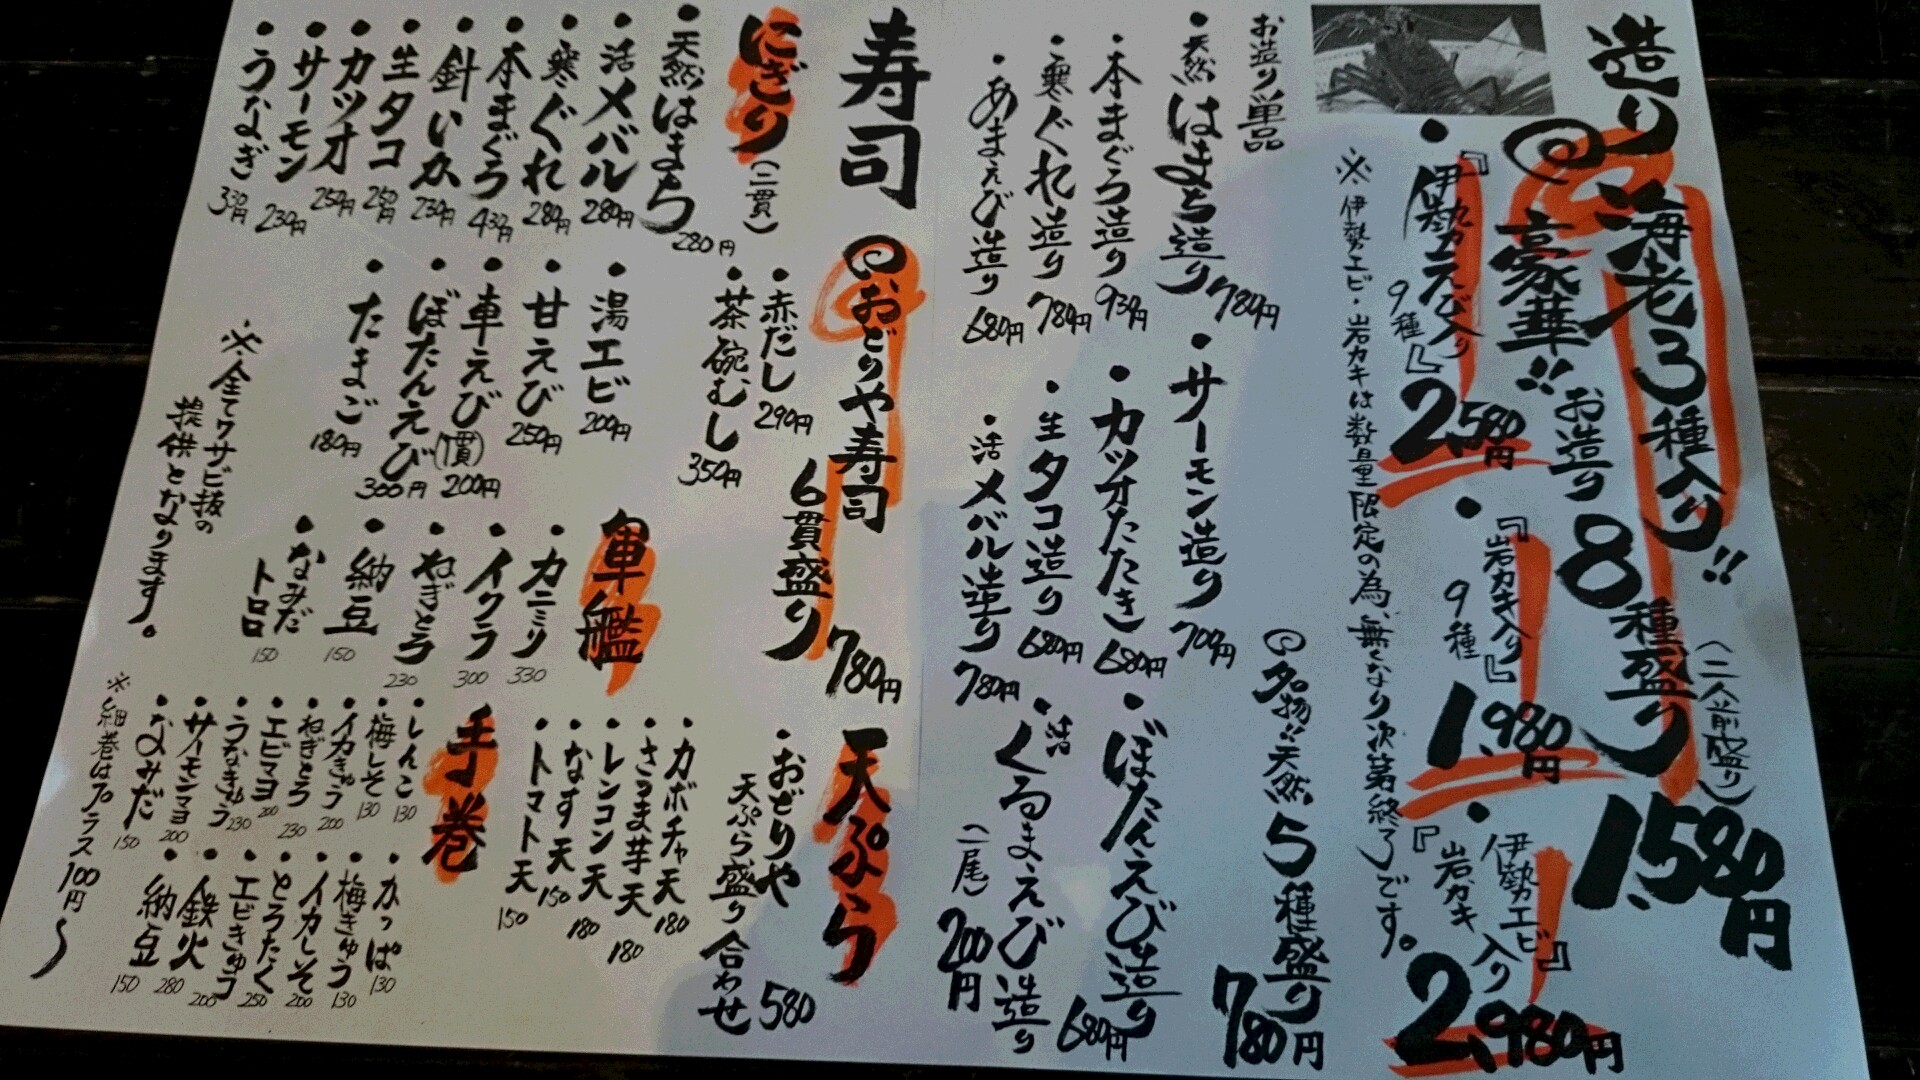 造り
海老3種入り!!
豪華!!お造り8種盛り
(二人前盛り)
1,580円
・『伊勢えび入り』
9種
2,580円
・『岩カキ入り』
9種
1,980円
・『伊勢エビ
岩ガキ入り』
2,980円
※伊勢エビ・岩カキは数量限定の為、無くなり次第終了です。
名物!!天然5種盛り
780円
お造り単品
・天然はまち造り 780円
・本まぐろ造り 930円
・寒ぐれ造り 780円
・あまえび造り 680円
・サーモン造り 700円
・カツオたたき 680円
・生タコ造り 680円
・活メバル造り 780円
・ぼたんえび造り 680円
・活くるまえび造り
(一尾) 200円
寿司
おどりや寿司
6貫盛り 780円
・赤だし 290円
・茶碗むし 350円
にぎり(二貫)
・天然はまち 280円
・活メバル 280円
・寒ぐれ 280円
・本まぐろ 430円
・針いか 230円
・生タコ 250円
・カツオ 250円
・サーモン 230円
・うなぎ 330円
・湯エビ 200円
・甘えび 250円
・車えび(1貫) 200円
・ぼたんえび 300円
・たまご 180円
※全てワサビ抜の
提供となります。
軍艦
・カニミソ 330
・イクラ 300
・ねぎとろ 230
・納豆 150
・なみだトロ 150
天ぷら
・おどりや
天ぷら盛り合わせ 580
・カボチャ天 180
・さつま芋天 180
・レンコン天 180
・なす天 150
・トマト天 150
手巻
・しんこ 130
・梅しそ 130
・イカきゅう 200
・ねぎとろ 230
・エビマヨ 200
・うなきゅう 230
・サーモンマヨ 200
・なみだ 150
・かっぱ 130
・梅きゅう 130
・イカしそ 200
・とろたく 250
・エビきゅう 200
・鉄火 280
・納豆 150
※細巻はプラス100円〜